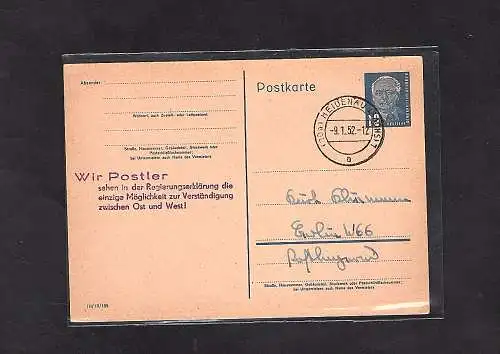 Absender:
Postkarte
Wohnort, auch Zustell- oder Leitpostamt
HEIDENAU
-9.1.52.-12
b
Straße, Hausnummer, Gebäudeteil, Stockwerk oder
Postschließfachnummer;
bei Untermietern auch Name des Vermieters
Wir Postler
sehen in der Regierungserklärung die
einzige Möglichkeit zur Verständigung
zwischen Ost und West!
Berlin W66
Straße, Hausnummer, Gebäudeteil, Stockwerk oder Postschließfachnummer;
bei Untermietern auch Name des Vermieters